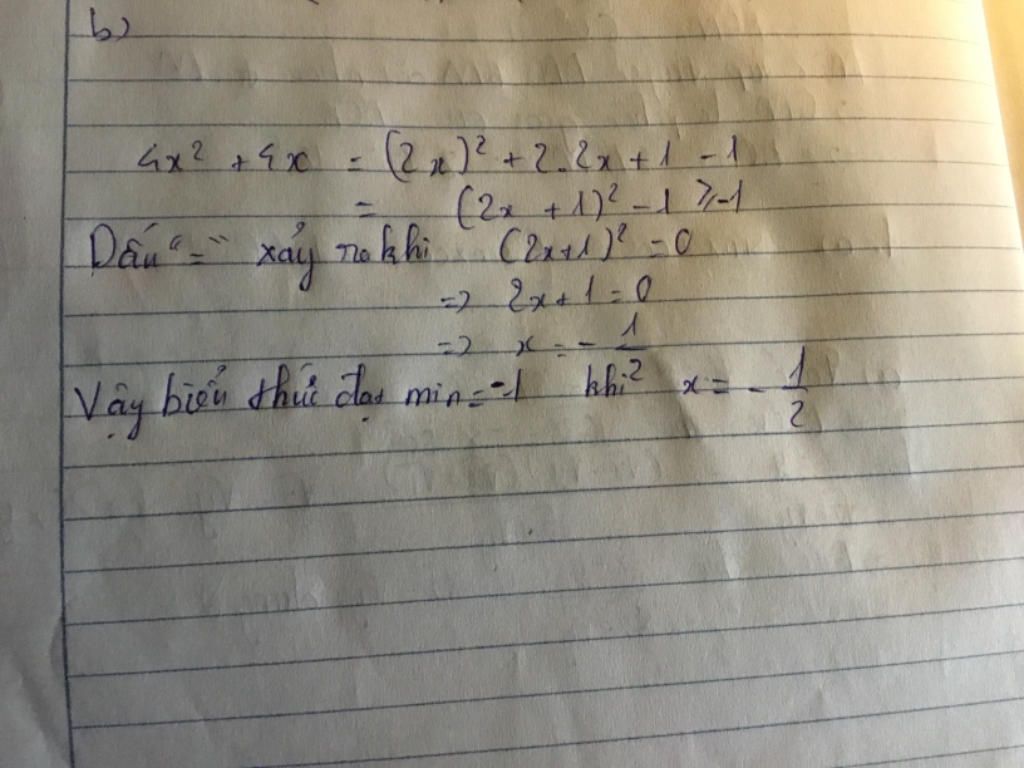 b)
4x² + 4x = (2x)² + 2.2x + 1 - 1
= (2x + 1)² - 1 ≥ -1
Dấu "=" xảy ra khi (2x+1)² = 0
=> 2x + 1 = 0
=> x = - 1/2
Vậy biểu thức đạt min = -1 khi x = - 1/2